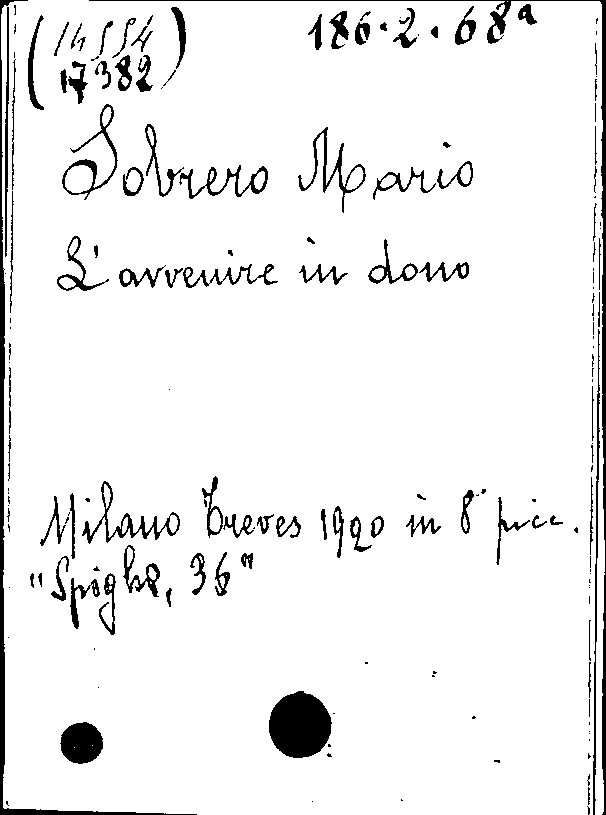 (14554
17382)
186.2.68ª
Sobrero Mario
L'avvenire in dono
Milano Treves 1920 in 8° picc.
"Spighe, 36"